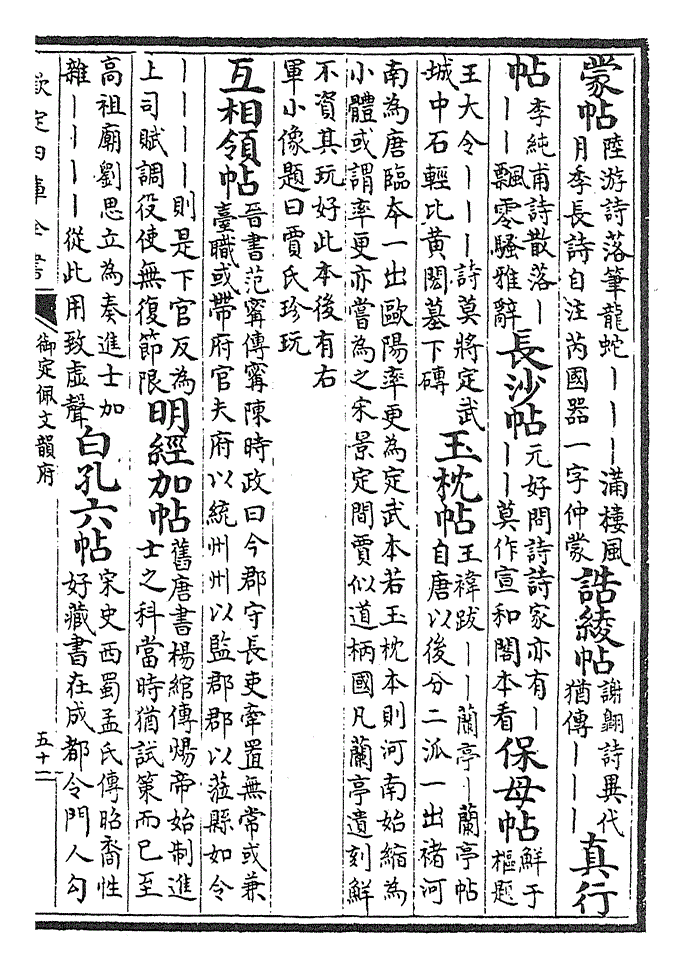 蒙帖陸游詩落筆龍蛇丨丨丨滿樓風月季長詩自注芮國器一字仲蒙誥綾帖謝翺詩異代猶傳丨丨丨真行
帖李純甫詩散落丨丨丨飄零騷雅辭長沙帖元好問詩詩家亦有丨丨丨莫作宣和閣本看保母帖鮮于樞題
王大令丨丨丨詩莫將定武城中石輕比黃閎墓下磚玉枕帖王禕跋丨丨蘭亭丨蘭亭帖自唐以後分二派一出褚河
南為唐臨夲一出歐陽率更為定武本若玉枕本則河南始縮為小體或謂率更亦嘗為之宋景定間賈似道柄國凡蘭亭遺刻鮮
不資其玩好此本後有右軍小像題曰賈氏珍玩
互相領帖晉書范甯傳甯陳時政曰今郡守長吏牽置無常或兼臺職或帶府官夫府以統州州以監郡郡以蒞縣如令
丨丨丨丨則是下官反為上司賦調役使無復節限明經加帖舊唐書楊綰傳煬帝始制進士之科當時猶試策而已至
高祖廟劉思立為奏進士加雜丨丨丨丨從此用致虛聲白孔六帖宋史西蜀孟氏傳昭裔性好藏書在成都令門人勾
欽定四庫全書
御定佩文韻府
五十二